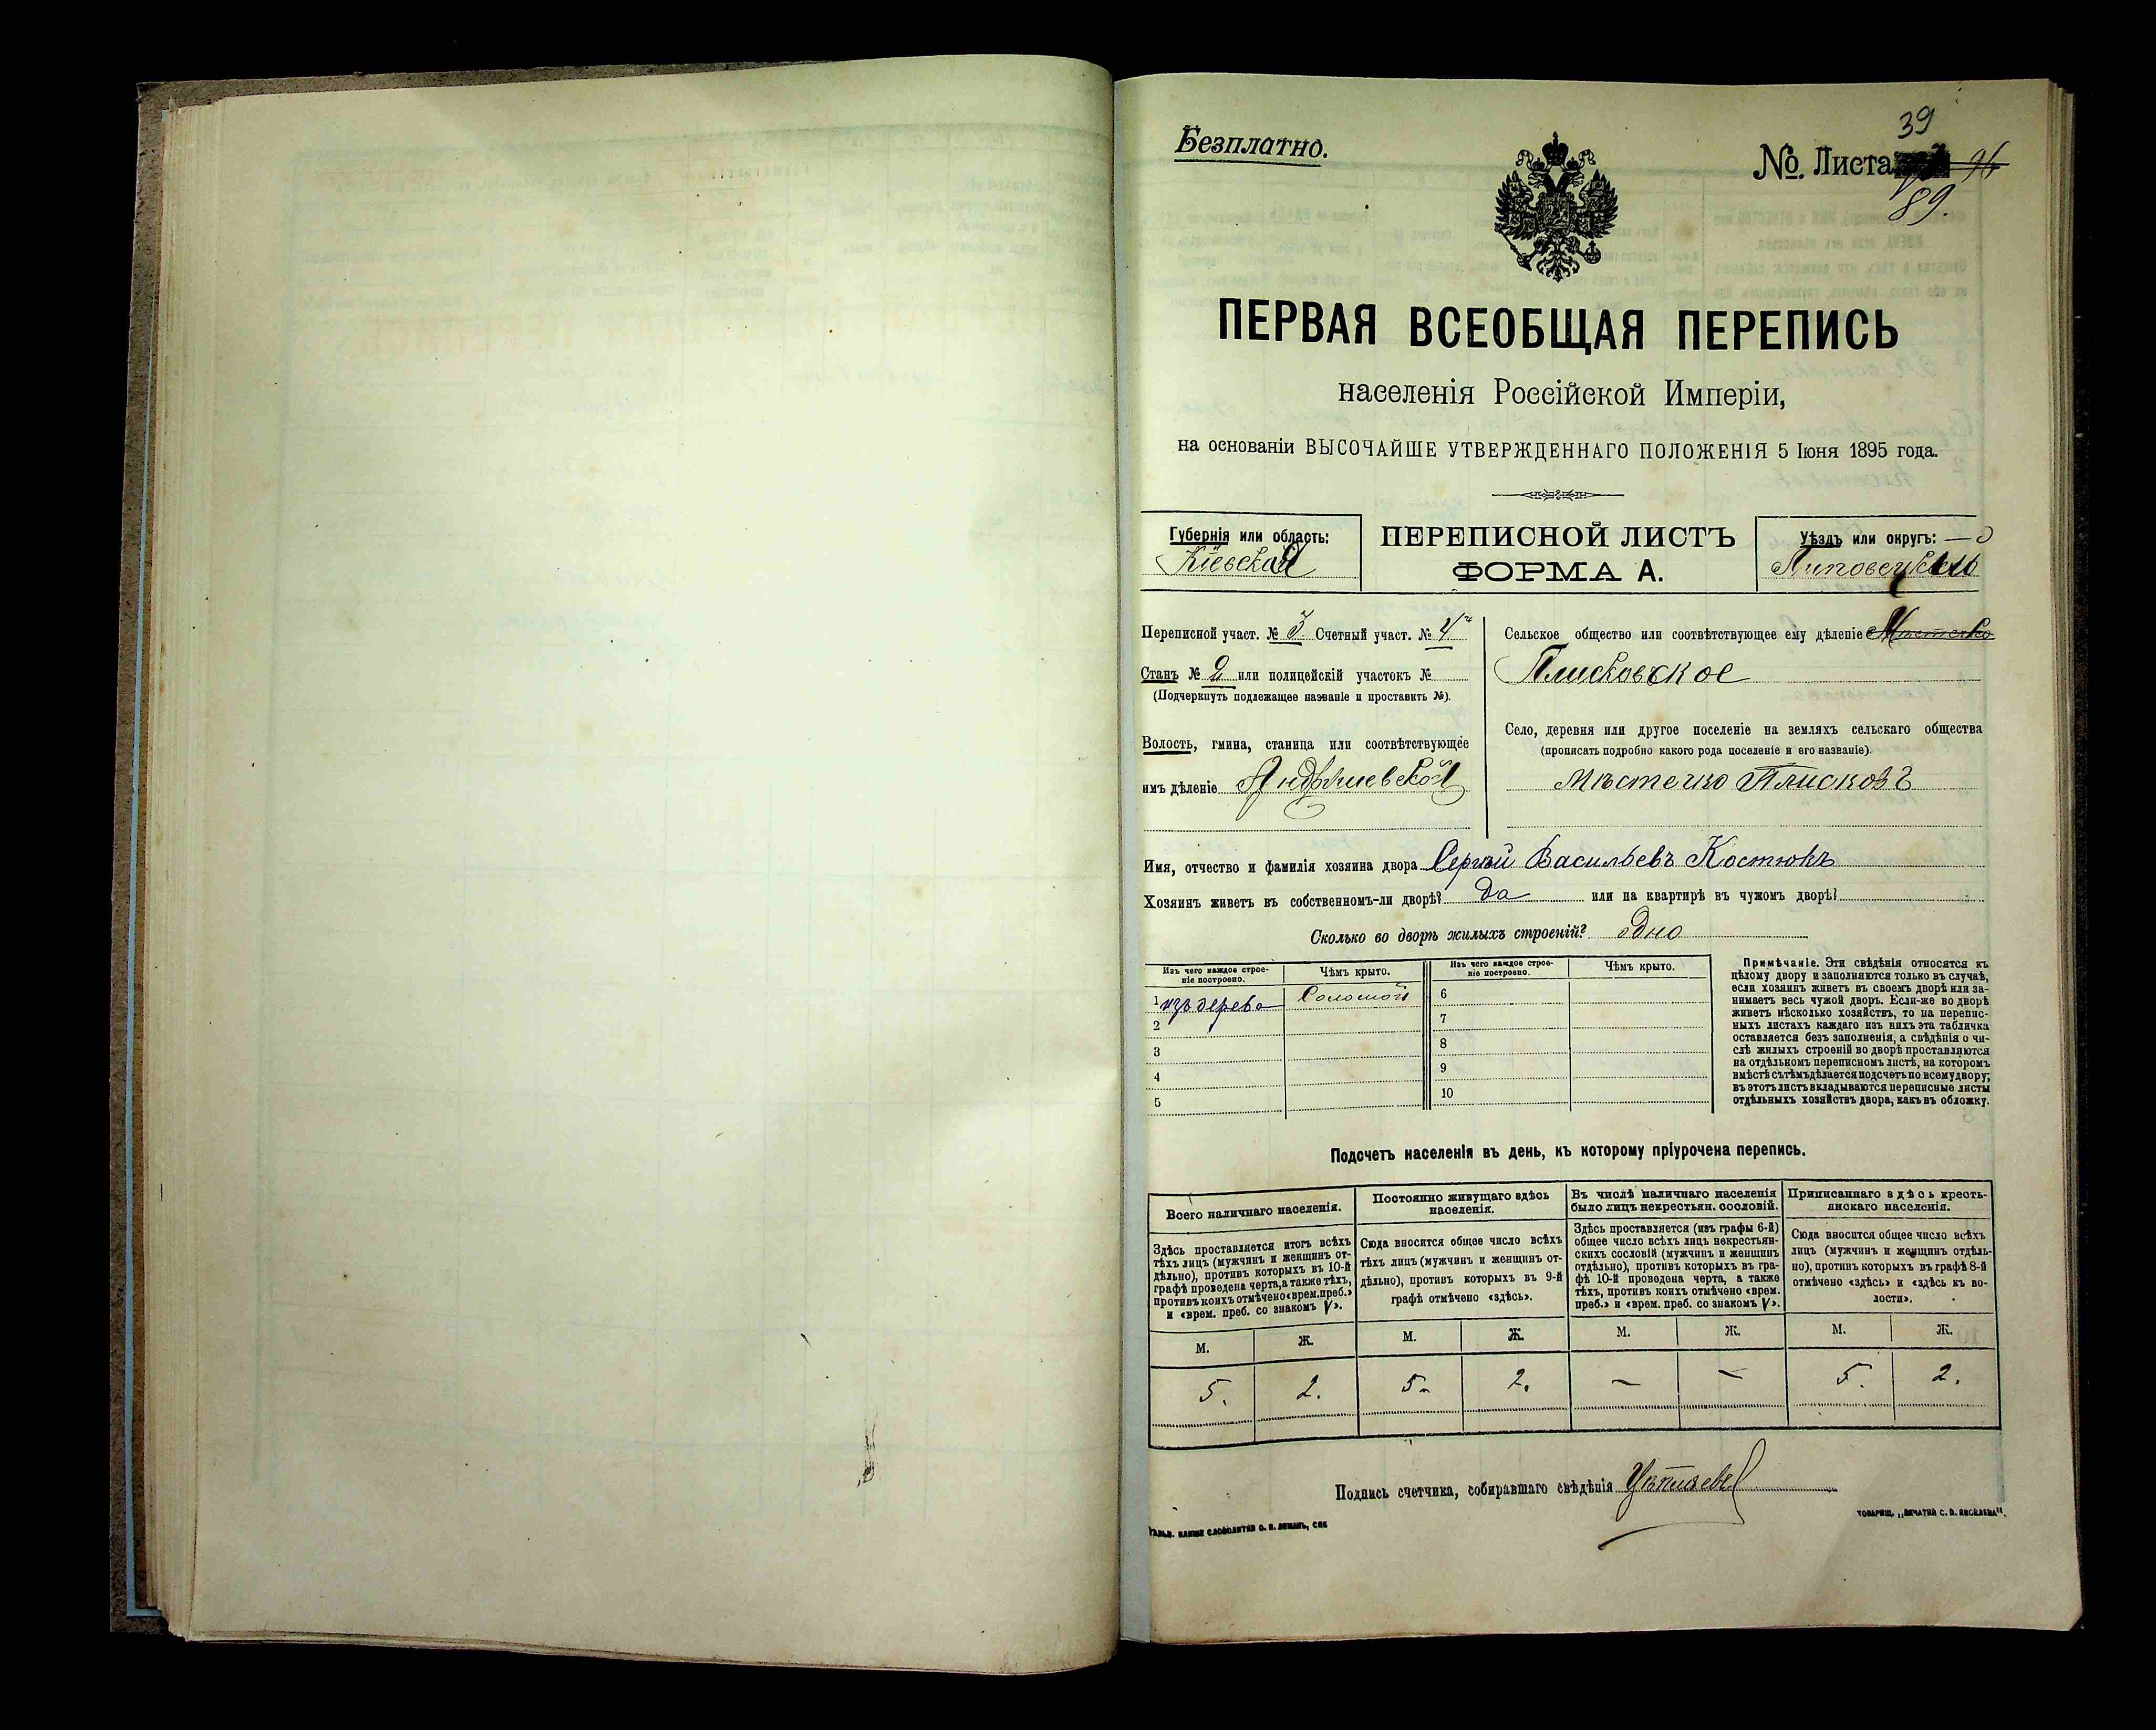 39
Безплатно.
№. Листа 96
89.
ПЕРВАЯ ВСЕОБЩАЯ ПЕРЕПИСЬ
населенія Россійской Имперіи,
на основаніи ВЫСОЧАЙШЕ УТВЕРЖДЕННАГО ПОЛОЖЕНІЯ 5 Іюня 1895 года.
Губернія или область:
Кіевская
ПЕРЕПИСНОЙ ЛИСТЪ
ФОРМА А.
Уѣздъ или округъ:
Липовецкій
Переписной участ. № 3 Счетный участ. № 4
Станъ № 2 или полицейскій участокъ №
(Подчеркнуть подлежащее названіе и проставить №).
Волость, гмина, станица или соотвѣтствующее
имъ дѣленіе
Сельское общество или соотвѣтствующее ему дѣленіе Мѣстечко
Плисковское
Село, деревня или другое поселеніе на земляхъ сельскаго общества
(прописать подробно какого рода поселеніе и его названіе).
Мѣстечко Плисковъ
Имя, отчество и фамилія хозяина двора Сергѣй Васильевъ Костюкъ
Хозяинъ живетъ въ собственномъ-ли дворѣ? Да или на квартирѣ въ чужомъ дворѣ?
Сколько во дворѣ жилыхъ строеній? Одно
Изъ чего каждое строе-
ніе построено.
Чѣмъ крыто.
1 изъ дерева Соломой
2
3
4
5
Изъ чего каждое строе-
ніе построено.
Чѣмъ крыто.
6
7
8
9
10
Примѣчаніе. Эти свѣдѣнія относятся къ
цѣлому двору и заполняются только въ случаѣ,
если хозяинъ живетъ въ своемъ дворѣ или за-
нимаетъ весь чужой дворъ. Если-же во дворѣ
живетъ нѣсколько хозяйствъ, то на перепис-
ныхъ листахъ каждаго изъ нихъ эта табличка
оставляется безъ заполненія, а свѣдѣнія о чи-
слѣ жилыхъ строеній во дворѣ проставляются
на отдѣльномъ переписномъ листѣ, на которомъ
вмѣстѣ съ тѣмъ дѣлается подсчетъ по всему двору;
въ этотъ листъ вкладываются переписные листы
отдѣльныхъ хозяйствъ двора, какъ въ обложку.
Подсчетъ населенія въ день, къ которому пріурочена перепись.
Всего наличнаго населенія.
Здѣсь проставляется итогъ всѣхъ
тѣхъ лицъ (мужчинъ и женщинъ от-
дѣльно), противъ которыхъ въ 10-й
графѣ проведена черта, а также тѣхъ,
противъ коихъ отмѣчено «врем. преб.»
и «врем. преб. со знакомъ V».
М. Ж.
5. 2.
Постоянно живущаго здѣсь
населенія.
Сюда вносится общее число всѣхъ
тѣхъ лицъ (мужчинъ и женщинъ от-
дѣльно), противъ которыхъ въ 9-й
графѣ отмѣчено «здѣсь».
М. Ж.
5. 2.
Въ числѣ наличнаго населенія
было лицъ некрестьян. сословій.
Здѣсь проставляется (изъ графы 6-й)
общее число всѣхъ лицъ некрестьян-
скихъ сословій (мужчинъ и женщинъ
отдѣльно), противъ которыхъ въ гра-
фѣ 10-й проведена черта, а также
тѣхъ, противъ коихъ отмѣчено «врем.
преб.» и «врем. преб. со знакомъ V».
М. Ж.
— —
Приписаннаго здѣсь кресть-
янскаго населенія.
Сюда вносится общее число всѣхъ
лицъ (мужчинъ и женщинъ отдѣль-
но), противъ которыхъ въ графѣ 8-й
отмѣчено «здѣсь» и «здѣсь къ во-
лости».
М. Ж.
5. 2.
Подпись счетчика, собиравшаго свѣдѣнія
ТОВАРИЩ. „ПЕЧАТНЯ С. П. ЯКОВЛЕВА".